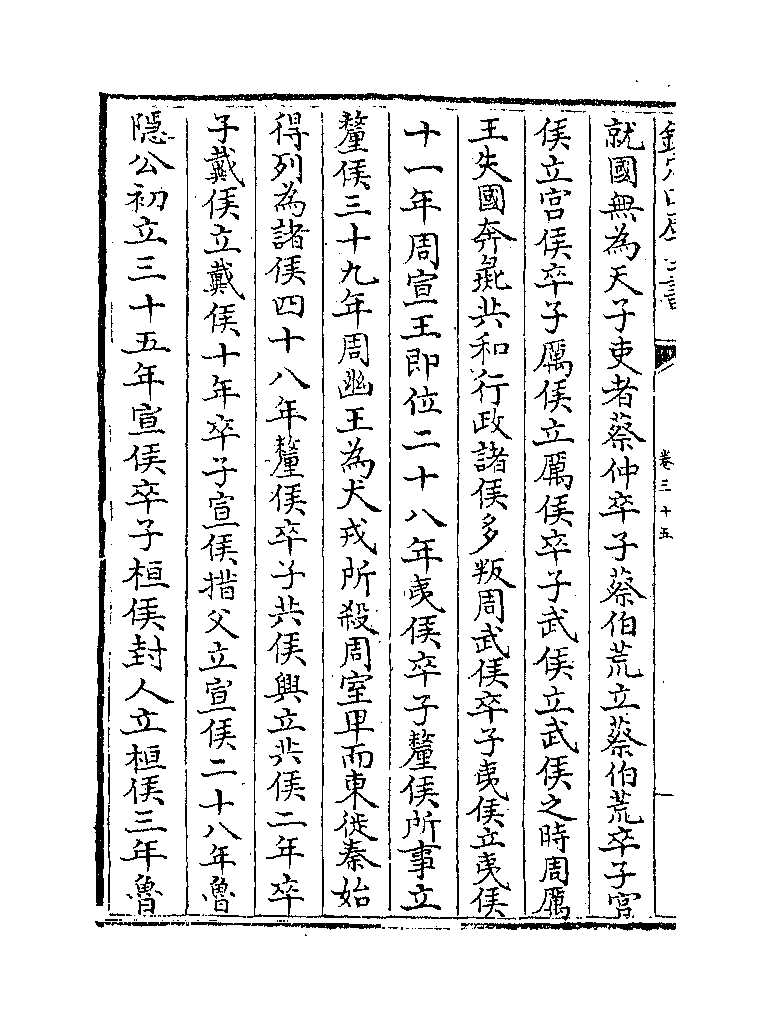 欽定四庫全書
卷三十五
就國無為天子吏者蔡仲卒子蔡伯荒立蔡伯荒卒子宫
侯立宫侯卒子厲侯立厲侯卒子武侯立武侯之時周厲
王失國奔彘共和行政諸侯多叛周武侯卒子夷侯立夷侯
十一年周宣王即位二十八年夷侯卒子釐侯所事立
釐侯三十九年周幽王為犬戎所殺周室卑而東徙秦始
得列為諸侯四十八年釐侯卒子共侯興立共侯二年卒
子戴侯立戴侯十年卒子宣侯措父立宣侯二十八年魯
隱公初立三十五年宣侯卒子桓侯封人立桓侯三年魯